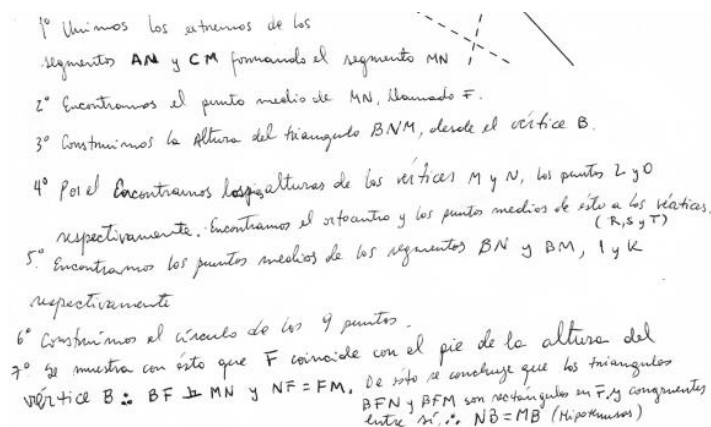 1° Unimos los extremos de los
segmentos AN y CM formando el segmento MN
2° Encontramos el punto medio de MN, llamado F.
3° Construimos la Altura del triangulo BNM, desde el vértice B.
4° Por el Encontramos los alturas de los vértices M y N, los puntos L y O
respectivamente. Encontramos el ortocentro y los puntos medios de ésto a los vértices.
(R, S y T)
5° Encontramos los puntos medios de los segmentos BN y BM, I y K
respectivamente
6° Construimos el círculo de los 9 puntos.
7° Se muestra con ésto que F coincide con el pie de la altura del
vértice B ∴ BF ⊥ MN y NF = FM. De esto se concluye que los triangulos
BFN y BFM son rectángulos en F, y congruentes
entre sí, ∴ NB = MB (Hipotenusas)